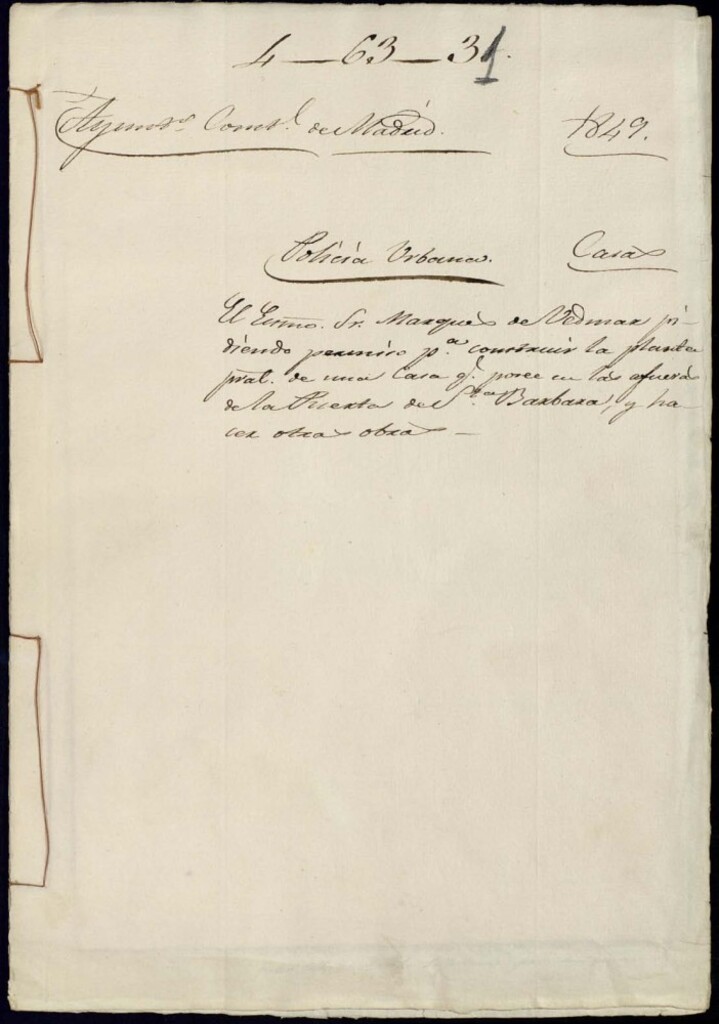 4 — 63 — 31.
Ayuntº. Constl. de Madrid. 1849.
Policía Urbana. Casas
El Excmo. Sr. Marques de Vedmar pi-
diendo permiso pª. construir la planta
pral. de una casa q.e posee en las afueras
de la Puerta de Sta. Barbara, y ha-
cer otras obras —